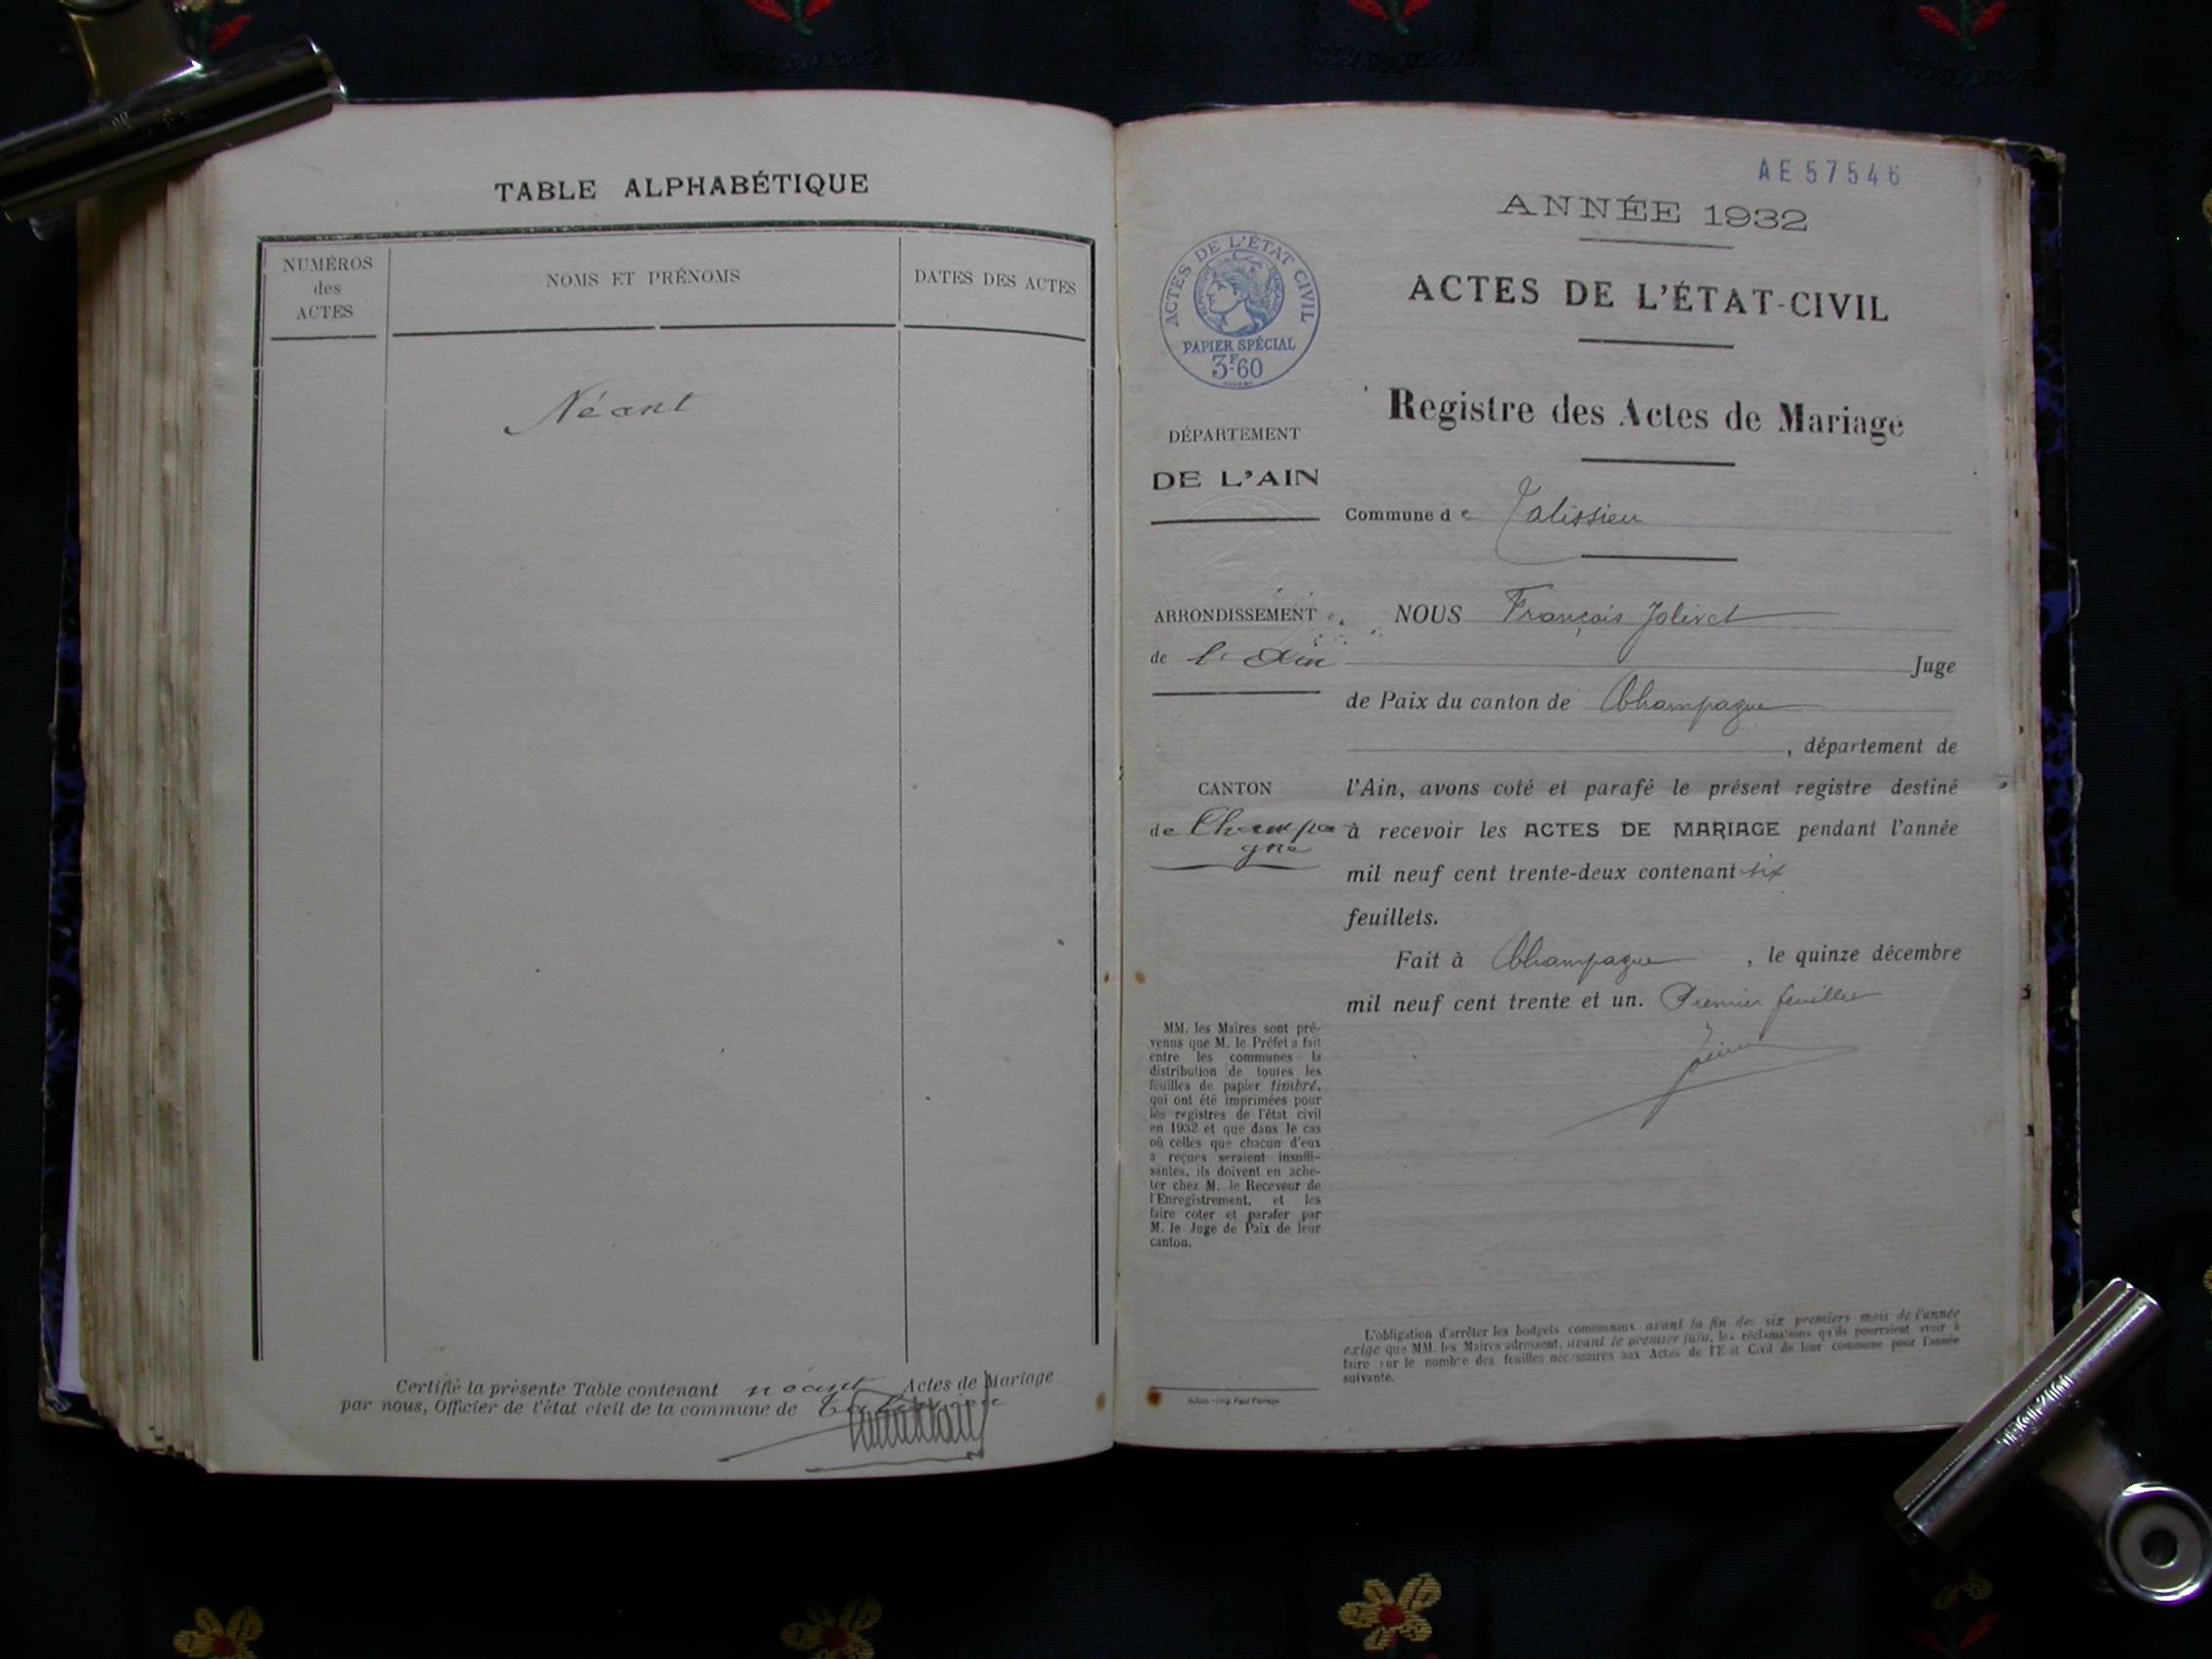 TABLE ALPHABÉTIQUE
NUMÉROS
des
ACTES
NOMS ET PRÉNOMS
DATES DES ACTES
Néant
Certifié la présente Table contenant néant Actes de Mariage
par nous, Officier de l'état civil de la commune de
AE 57546
ANNÉE 1932
ACTES DE L'ÉTAT CIVIL
PAPIER SPÉCIAL
3F60
ACTES DE L'ÉTAT-CIVIL
Registre des Actes de Mariage
DÉPARTEMENT
DE L'AIN
Commune de Talissieu
ARRONDISSEMENT
de l'Ain
CANTON
de Champa
gne
NOUS François Jolivet
Juge
de Paix du canton de Champagne
, département de
l'Ain, avons coté et parafé le présent registre destiné
à recevoir les ACTES DE MARIAGE pendant l'année
mil neuf cent trente-deux contenant six
feuillets.
Fait à Champagne, le quinze décembre
mil neuf cent trente et un. Premier feuillet
MM. les Maires sont pré-
venus que M. le Préfet a fait
entre les communes la
distribution de toutes les
feuilles de papier timbré,
qui ont été imprimées pour
les registres de l'état civil
en 1932 et que dans le cas
où celles que chacun d'eux
a reçues seraient insuffi-
santes, ils doivent en ache-
ter chez M. le Receveur de
l'Enregistrement, et les
faire coter et parafer par
M. le Juge de Paix de leur
canton.
L'obligation d'arrêter les budgets communaux avant la fin des six premiers mois de l'année
exige que MM. les Maires adressent, avant le premier juin, les réclamations qu'ils pourraient avoir à
faire sur le nombre des feuilles nécessaires aux Actes de l'Etat Civil de leur commune pour l'année
suivante.